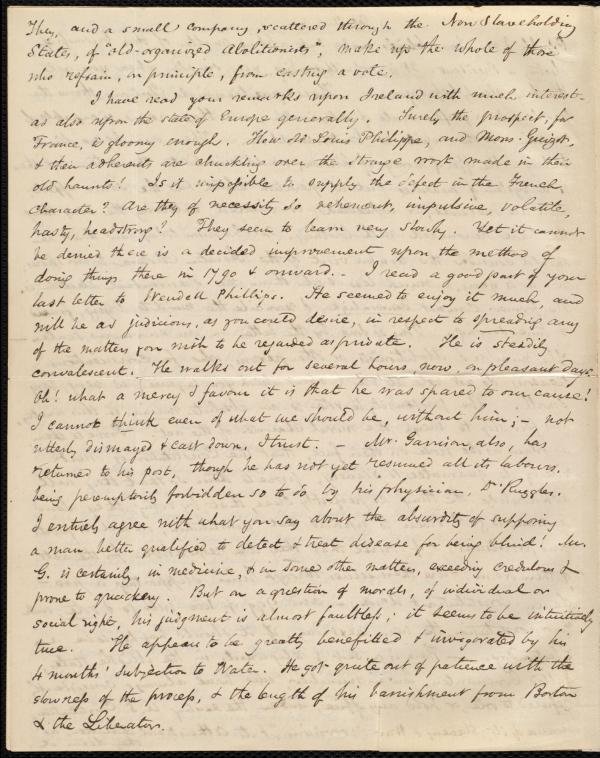 They, and a small company, scattered through the Non Slaveholding
States, of "old-organized Abolitionists", make up the whole of those
who refrain, on principle, from casting a vote.
I have read your remarks upon Ireland with much interest-
as also upon the state of Europe generally. Surely the prospect, for
France, is gloomy enough. How old Louis Philippe, and Mons. Guizot,
& their adherents are chuckling over the strange work made in their
old haunts! Is it impossible to supply the defect in the French
Character? Are they of necessity so vehement, impulsive, volatile,
hasty, headstrong? They seem to learn very slowly. Yet it cannot
be denied there is a decided improvement upon the method of
doing things there in 1790 & onward. - I read a good part of your
last letter to Wendell Phillips. He seemed to enjoy it much, and
will be as judicious, as you could desire, in respect to spreading any
of the matters you wish to be regarded as private. He is steadily
convalescent. He walks out for several hours, now, on pleasant days.
Oh! what a mercy & favour it is that he was spared to our cause!
I cannot think even of what we should be, without him; - not
utterly dismayed & cast down, I trust. - Mr. Garrison, also, has
returned to his post, though he has not yet resumed all its labours,
being peremptorily forbidden so to do by his physician, Dr. Ruggles.
I entirely agree with what you say about the absurdity of supposing
a man better qualified to detect & treat disease for being blind! Mr.
G. is certainly, in medicine, & in some other matters, exceeding credulous &
prone to quackery. But on a question of morals, of individual or
social right, his judgment is almost faultless; it seems to be intuitively
true. He appears to be greatly benefitted & invigorated by his
4 months' subjection to Water. He got quite out of patience with the
slowness of the process, & the length of his banishment from Boston
& the Liberator.